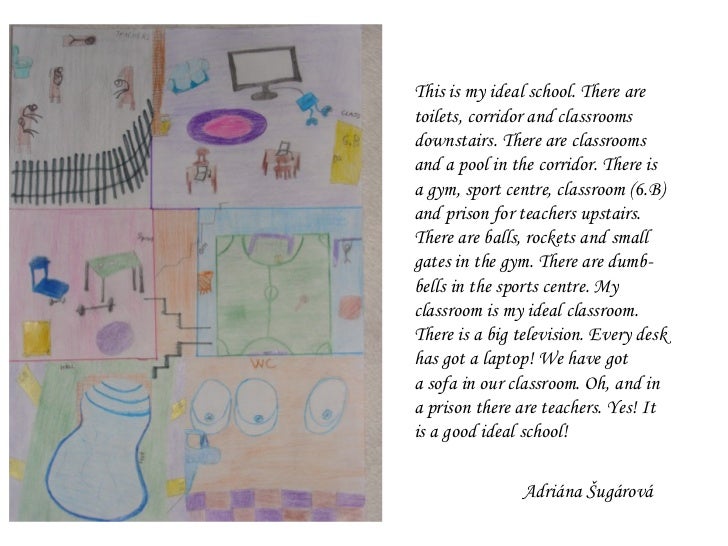 TEACHERS
CLASS
6.B
Sport
WC
This is my ideal school. There are
toilets, corridor and classrooms
downstairs. There are classrooms
and a pool in the corridor. There is
a gym, sport centre, classroom (6.B)
and prison for teachers upstairs.
There are balls, rockets and small
gates in the gym. There are dumb-
bells in the sports centre. My
classroom is my ideal classroom.
There is a big television. Every desk
has got a laptop! We have got
a sofa in our classroom. Oh, and in
a prison there are teachers. Yes! It
is a good ideal school!
Adriána Šugárová